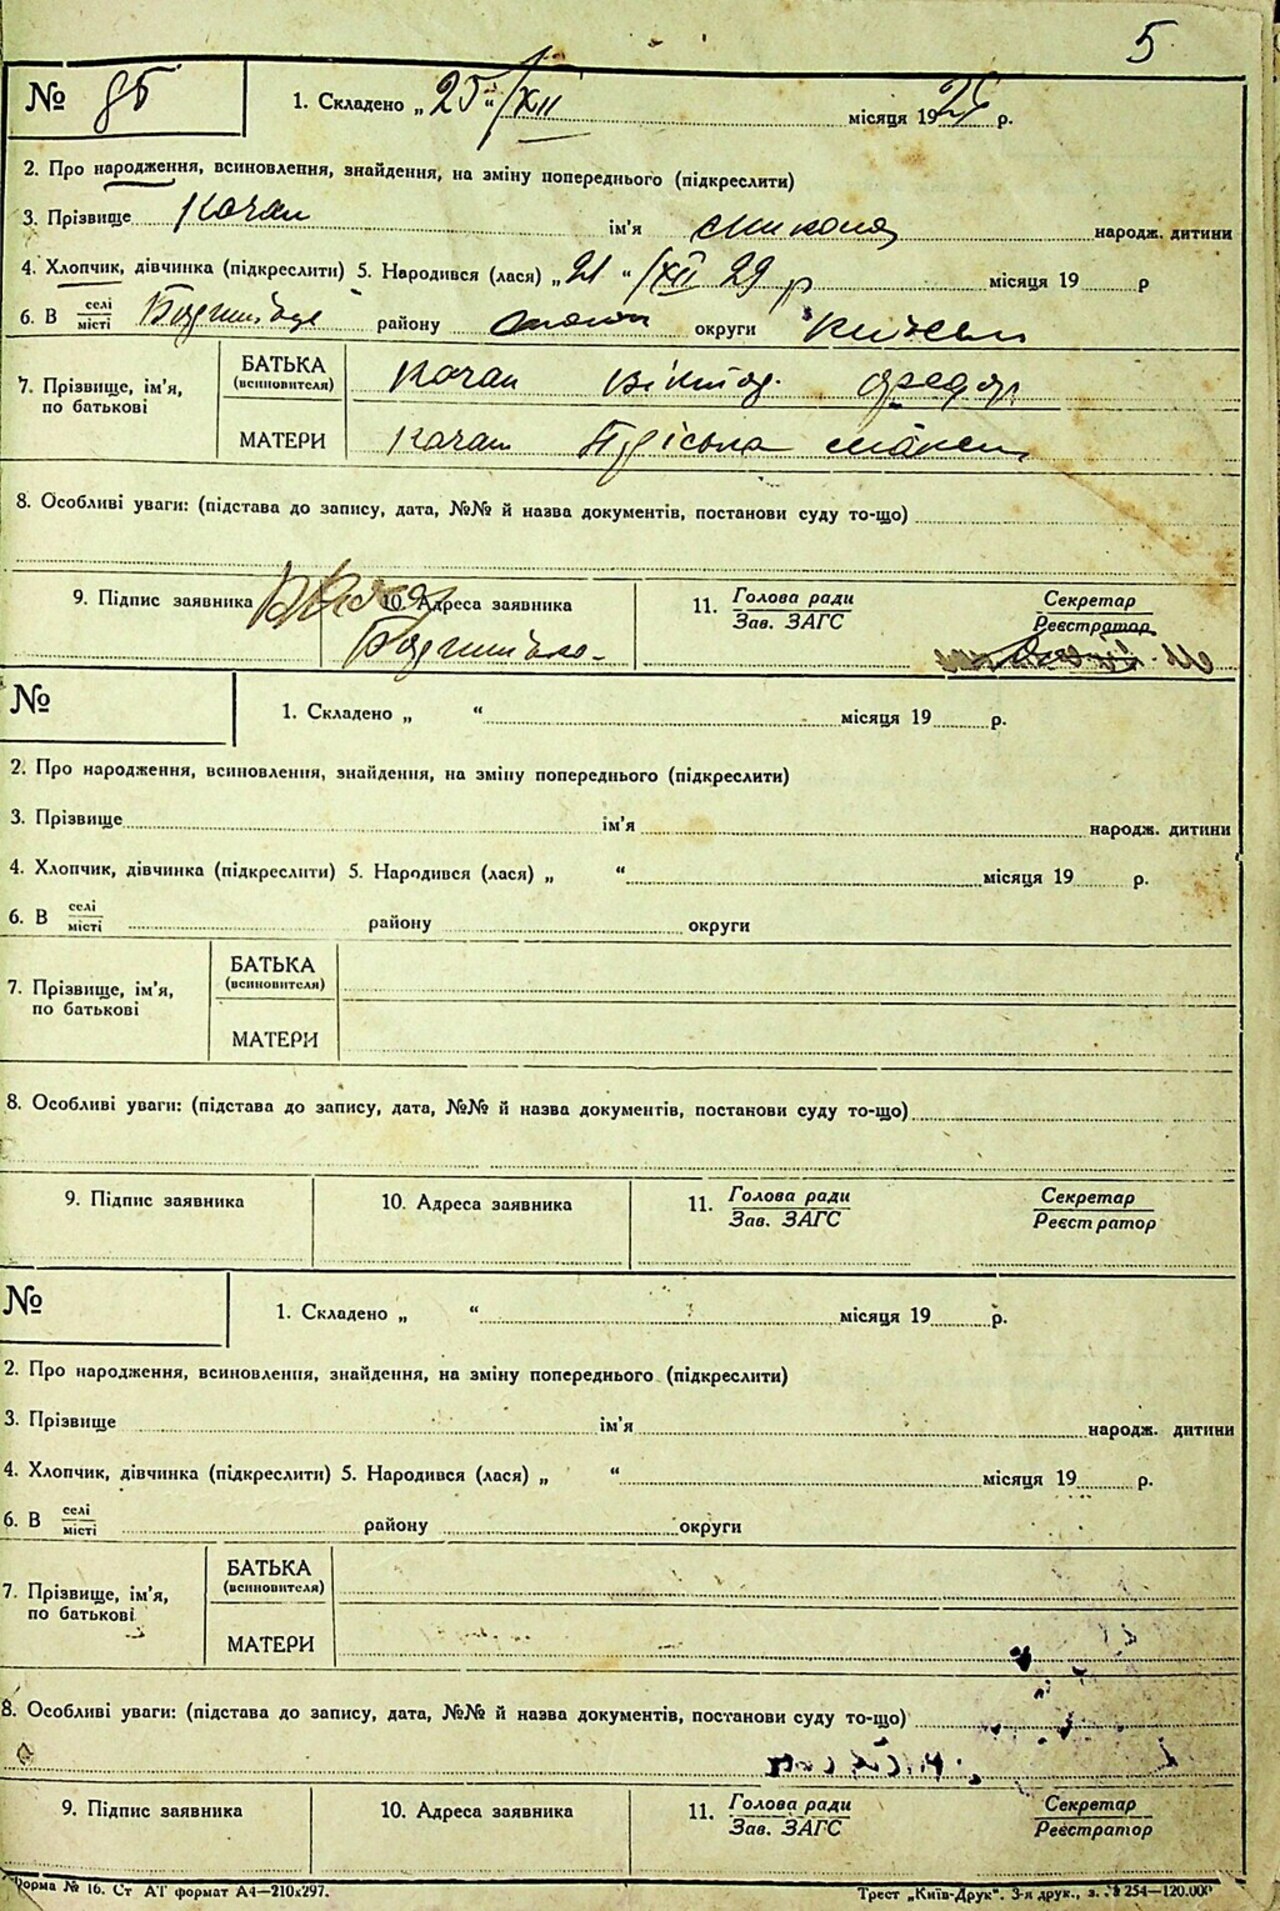 5
№ 1. Складено „ 25 “ /XII місяця 19 р.
2. Про народження, всиновлення, знайдення, на зміну попереднього (підкреслити)
3. Прізвище Кочан ім'я Микола народж. дитини
4. Хлопчик, дівчинка (підкреслити) 5. Народився (лася) „ 21 “ /XII 29 р місяця 19 р
6. В селі району округи
місті
7. Прізвище, ім'я, по батькові БАТЬКА (всиновителя) Кочан Віктор Федор
МАТЕРИ Кочан
8. Особливі уваги: (підстава до запису, дата, №№ й назва документів, постанови суду то-що)
9. Підпис заявника 10. Адреса заявника 11. Голова ради Секретар
Зав. ЗАГС Реєстратор
№ 1. Складено „ “ місяця 19 р.
2. Про народження, всиновлення, знайдення, на зміну попереднього (підкреслити)
3. Прізвище ім'я народж. дитини
4. Хлопчик, дівчинка (підкреслити) 5. Народився (лася) „ “ місяця 19 р.
6. В селі району округи
місті
7. Прізвище, ім'я, по батькові БАТЬКА (всиновителя)
МАТЕРИ
8. Особливі уваги: (підстава до запису, дата, №№ й назва документів, постанови суду то-що)
9. Підпис заявника 10. Адреса заявника 11. Голова ради Секретар
Зав. ЗАГС Реєстратор
№ 1. Складено „ “ місяця 19 р.
2. Про народження, всиновлення, знайдення, на зміну попереднього (підкреслити)
3. Прізвище ім'я народж. дитини
4. Хлопчик, дівчинка (підкреслити) 5. Народився (лася) „ “ місяця 19 р.
6. В селі району округи
місті
7. Прізвище, ім'я, по батькові БАТЬКА (всиновителя)
МАТЕРИ
8. Особливі уваги: (підстава до запису, дата, №№ й назва документів, постанови суду то-що)
9. Підпис заявника 10. Адреса заявника 11. Голова ради Секретар
Зав. ЗАГС Реєстратор
Форма № 16. Ст АТ формат А4—210х297. Трест „Київ-Друк". 3-я друк., з. 254—120.000